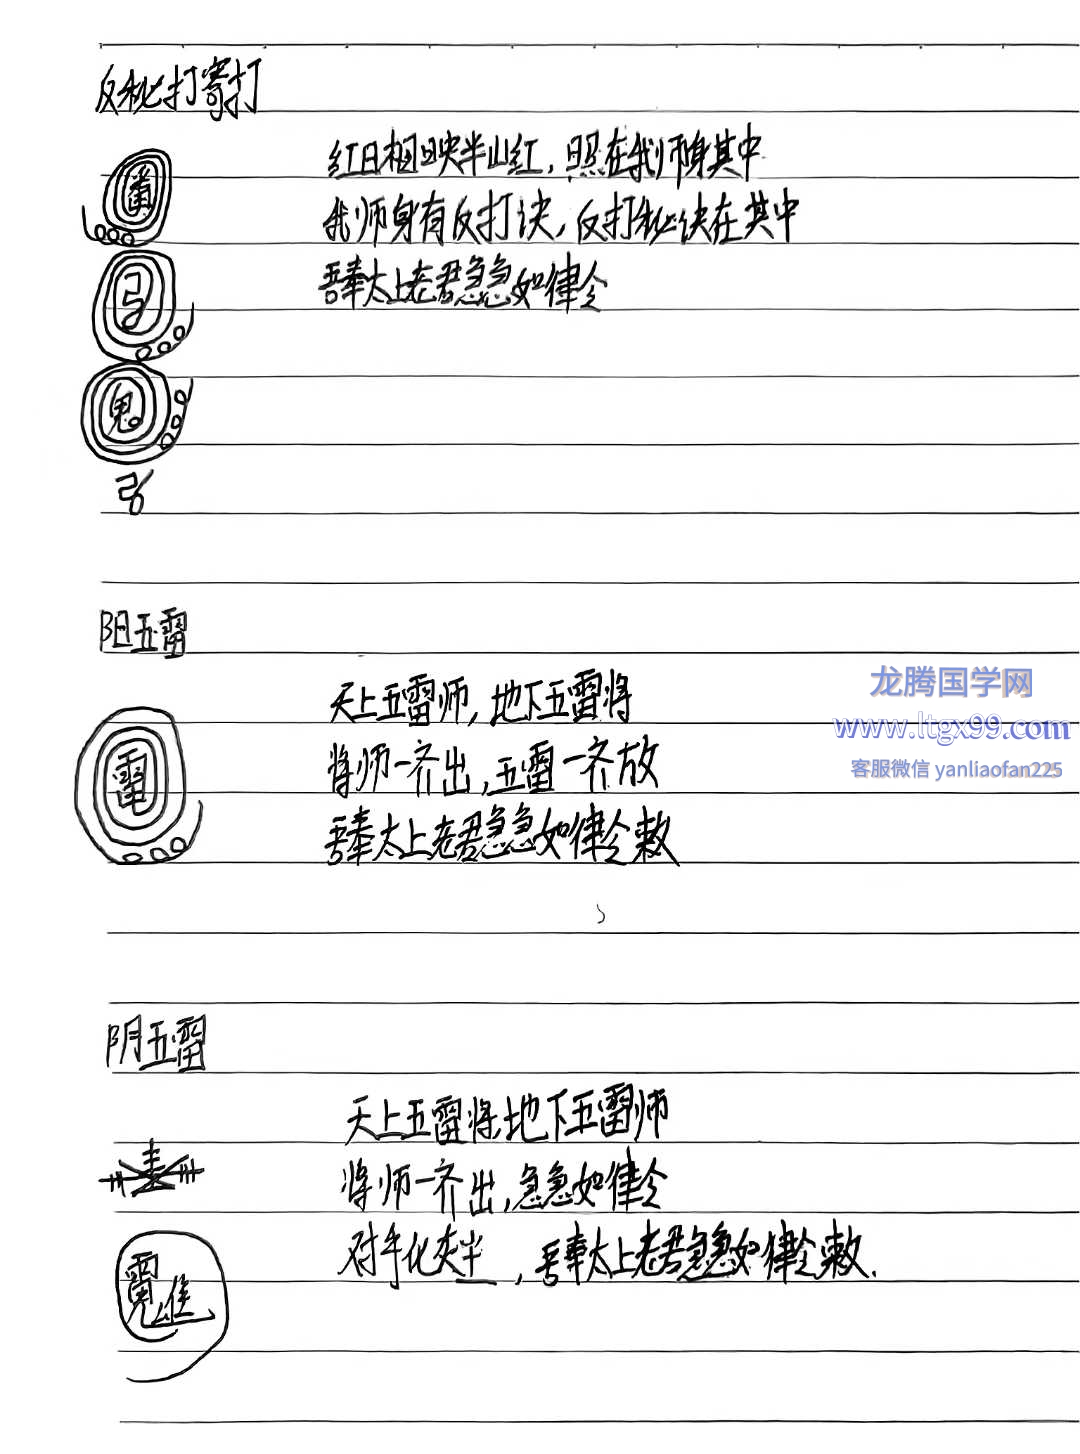 反秘打寄打
红日相映半山红,照在我师身其中
我师身有反打诀,反打秘诀在其中
吾奉太上老君急急如律令
弓
鬼
阳五雷
天上五雷师,地下五雷将
将师一齐出,五雷一齐放
吾奉太上老君急急如律令敕
龙腾国学网
www.ltgx99.com
客服微信 yanliaofan225
阴五雷
天上五雷将,地下五雷师
将师一齐出,急急如律令
对手化灰尘,吾奉太上老君急急如律令敕.